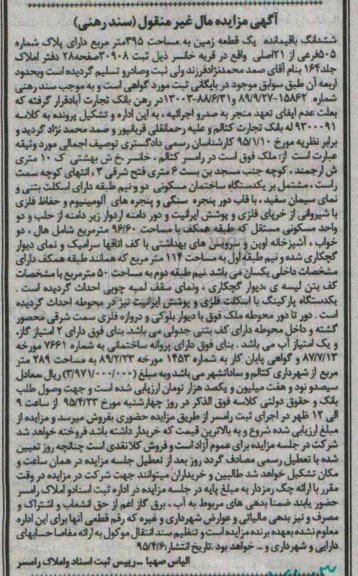 آگهی مزایده مال غیر منقول (سند رهنی)
ششدانگ باقیمانده یک قطعه زمین به مساحت ۳۹۵متر مربع دارای پلاک شماره
۵۰۵فرعی از ۲۱اصلی واقع در قریه خانسر ذیل ثبت ۳۰۹۰۸صفحه۲۸ دفتر املاک
جلد۱۶۴ بنام آقای صمد محمدنژادفرزند ولی ثبت وصادرو تسلیم گردیده است وبحدود
اربعه آن طبق سوابق موجود در بایگانی ثبت مورد گواهی است و به موجب سند رهنی
شماره ۱۵۸۶۲-۸۹/۹/۲۷ و۱۳۰۰۳-۸۸/۶/۳۱در رهن بانک تجارت آبادقرار گرفته که
بعلت عدم ایفای تعهد منجر به صدرو اجرائیه ، به این اداره و تشکیل پرونده به کلاسه
۹۳۰۰۰۹۱ له بانک تجارت کتالم و علیه رحمانقلی قربانپور و صمد محمد نژاد گردید و
برابر نظریه مورخ ۹۵/۱/۱۰ کارشناسان رسمی دادگستری توصیف اجمالی مورد وثیقه
عبارت است از: ملک فوق است در رامسر کتالم ، خانسر ،خ ش بهشتی ک ۱۰ متری
ش ارجمند ، کوچه جنب مسجد بن بست ۶ متری فتح شرقی ۳ ، انتهای کوچه سمت
راست ، مشتمل بر یکدستگاه ساختمان مسکونی دو و نیم طبقه دارای اسکلت بتنی و
نمای سیمان سفید ، با قاب دور پنجره سنگی و پنجره های آلومینیوم و حفاظ فلزی
با شیروانی از خرپای فلزی و پوشش ایرانیت و دور دامنه اردواز زیر دامنه از حلب و دو
واحد مسکونی مستقل که طبقه همکف با مساحت ۹۶/۶۰ مترمربع شامل هال ، دو
خواب ، آشپزخانه اوپن و سرویس های بهداشتی با کف اتاقها سرامیک و نمای دیوار
گچکاری شده و نیم طبقه اول به مساحت ۱۱۴ متر مربع که همانند طبقه همکف دارای
مشخصات داخلی یکسان می باشد نیم طبقه دوم به مساحت ۵۰ مترمربع با مشخصات
کف بتن لیسه ی دیوار گچکاری ، ونمای سقف لمبه چوبی احداث گردیده است .
یکدستگاه پارکینگ با اسکلت فلزی و پوشش ایرانیت نیز در محوطه احداث گردیده
است . دور تا دور محوطه ملک فوق با دیوار بلوکی و دروازه فلزی سمت شرقی محصور
گشته و داخل محوطه دارای کف بتنی جدولی می باشد. بنای فوق دارای ۲ امتیاز گاز،
و یک امتیاز آب می باشد . بنای فوق دارای پروانه ساختمانی به شماره ۷۶۶۱ مورخه
۸۷/۷/۱۳ و گواهی پایان کار به شماره ۱۴۵۳ مورخه ۸۹/۲/۲۳ به مساحت ۲۸۹ متر
مربع از شهرداری کتالم و ساداتشهر می باشد وبه مبلغ (۳/۹۷۱/۰۰۰/۰۰۰) ریال معادل
سیصدو نود و هفت میلیون و یکصد هزار تومان ارزیابی شده است و جهت وصول طلب
بانک و حقوق دولتی کلاسه فوق الذکر در روز چهارشنبه مورخ ۹۵/۴/۲۳ از ساعت ۹
الی ۱۲ ظهر در اجرای ثبت رامسر از طریق مزایده حضوری بفروش میرسد و مزایده از
مبلغ ارزیابی شده شروع و به بالاترین قیمت که خریدار داشته باشد فروخته خواهد شد
شرکت در جلسه مزایده برای عموم آزاد است و فروش کلا نقدی است چنانچه روز تعیین
شده با تعطیل رسمی مصادف گردد روز بعد از تعطیل جلسه مزایده در همان ساعت و
مکان تشکیل خواهد شد طالبین و خریداران میتوانند جهت شرکت در مزایده در وقت
مقرر با ارائه چک رمزدار به مبلغ پایه در جلسه مزایده در اداره ثبت اسنادو املاک رامسر
حضور یابند ضمنا بدهی های مربوط به آب ، برق گاز اعم از حق انشعاب و اشتراک و
مصرف و نیز بدهی مالیاتی و عوارض شهرداری و غیره که رقم قطعی آنها برای این اداره
معلوم نشده بعهده برنده مزایده است و تنظیم سند انتقال موکول به ارائه مفاصا حسابهای
دارایی و شهرداری و ... خواهد بود .تاریخ انتشار:۹۵/۴/۶
الیاس صهبا –رییس ثبت اسناد واملاک رامسر